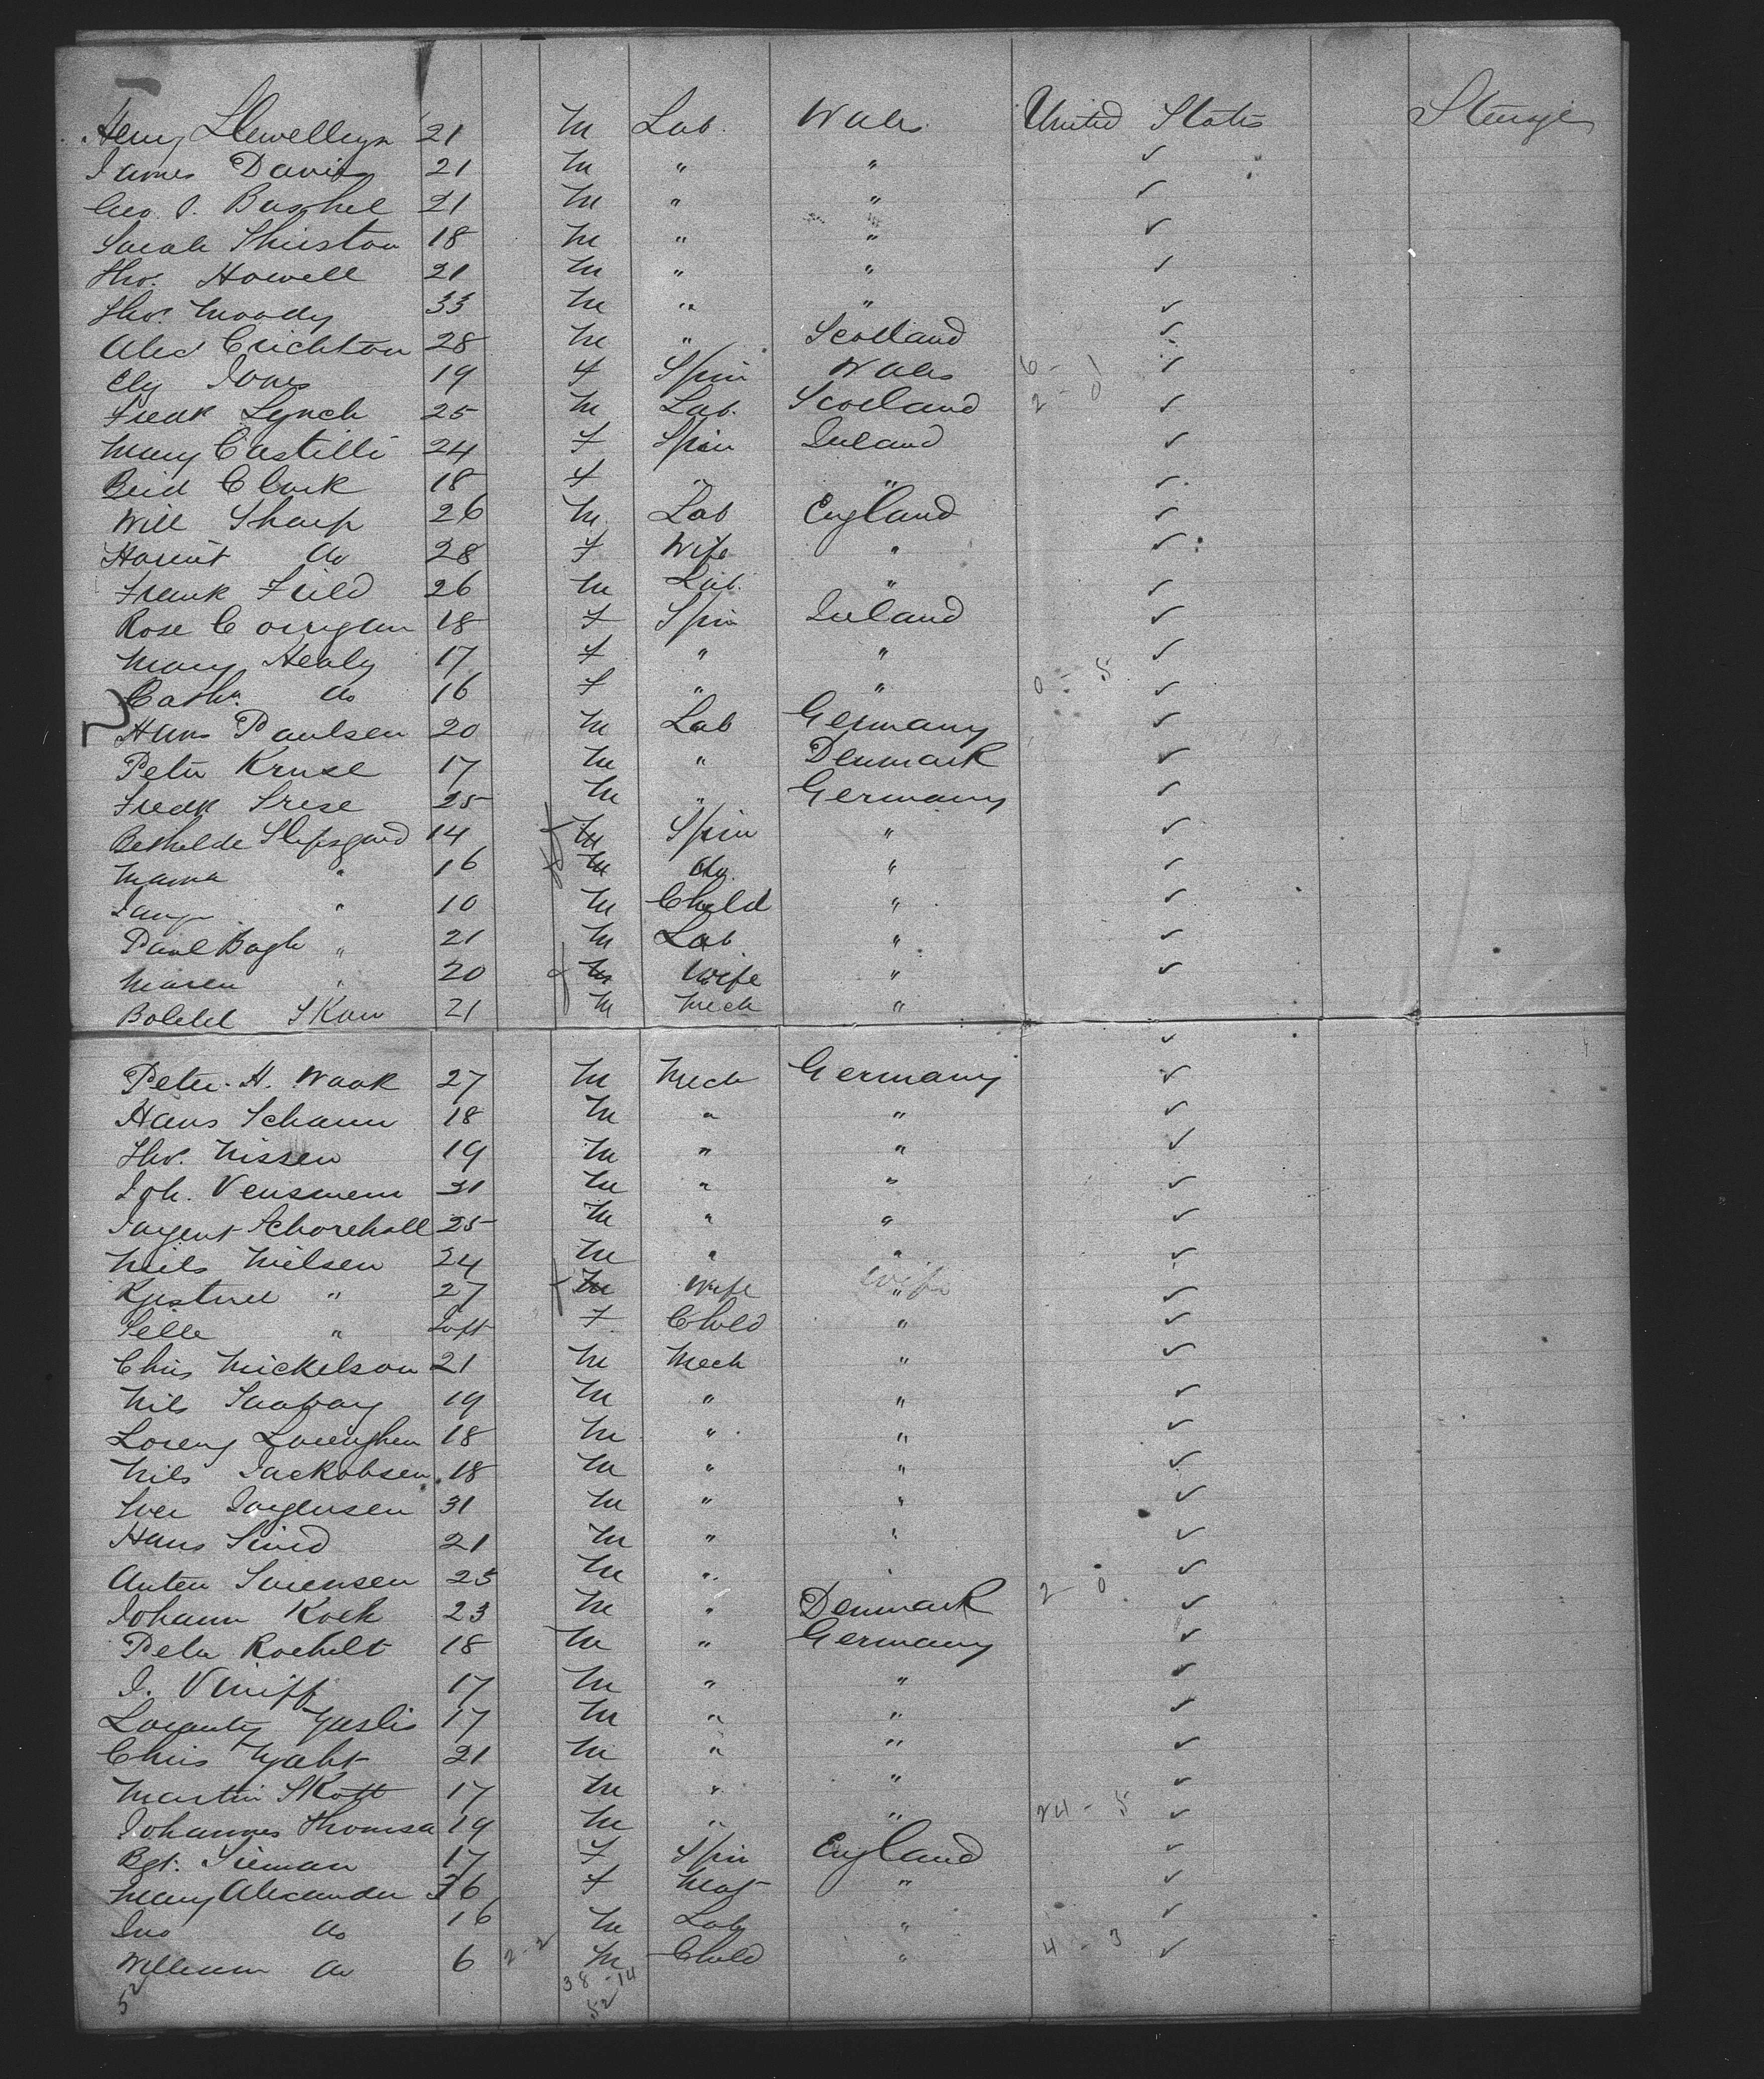 Henry Llewellyn 21 M Lab. Wales United States Steerage
James Davis 21 M " " ✓
Geo. J. Bushel 21 M " " ✓
Sarah Thurston 18 M " " ✓
Thos. Howell 21 M " " ✓
Thos. Moody 33 M " " ✓
Alex Crichton 28 M " Scotland ✓
Eliz Jones 19 F Spin Wales 6 - 1 ✓
Fredk Lynch 25 M Lab. Scotland 2 - 0 ✓
Mary Castilli 24 F Spin Ireland ✓
Brid Clark 18 F " " ✓
Will Sharp 26 M Lab England ✓
Harriet do 28 F Wife " ✓
Frank Field 26 M Lab. " ✓
Rose Corrigan 18 F Spin Ireland ✓
Mary Healy 17 F " " ✓
Cathn. do 16 F " " 0 - 5 ✓
Hans Paulsen 20 M Lab Germany ✓
Peter Kruse 17 M " Denmark ✓
Fredk Srese 25 M " Germany ✓
Bethilde Slepsgard 14 M Spin " ✓
Mama " 16 M do. " ✓
" 10 M Child " ✓
Paul Bagh " 21 M Lab " ✓
Maren " 20 M Wife " ✓
Boleld Skow 21 M Mech " ✓
Peter H. Waak 27 M Mech Germany ✓
Hans Schaum 18 M " " ✓
Thos. Nissen 19 M " " ✓
Joh. Vensmem 21 M " " ✓
Schorehall 25 M " " ✓
Niels Nielsen 24 M " " ✓
Kjestine " 27 M Wife " ✓
Selle " Inft F Child " ✓
Chris Mickelson 21 M Mech " ✓
Nils Saabay 19 M " " ✓
Lorenz Lorenzhen 18 M " " ✓
Nils Jackobsen 18 M " " ✓
Iver Jorgensen 31 M " " ✓
Hans Simd 21 M " " ✓
Anten Sorensen 25 M " " 2 - 0 ✓
Johann Koch 23 M " Denmark ✓
Peter Rachelt 18 M " Germany ✓
J. Viniff 17 M " " ✓
17 M " " ✓
Chris Yaht 21 M " " ✓
Martin Skott 17 M " " ✓
Johannes Thomsa 19 M " " 24 - 5 ✓
Bgt. Sieman 17 F Spin England ✓
Mary Alexander 36 F Mat " ✓
Jno do 16 M Lab " ✓
William do 6 2-2 M Child " 4 - 3 ✓
52 38 - 14
52